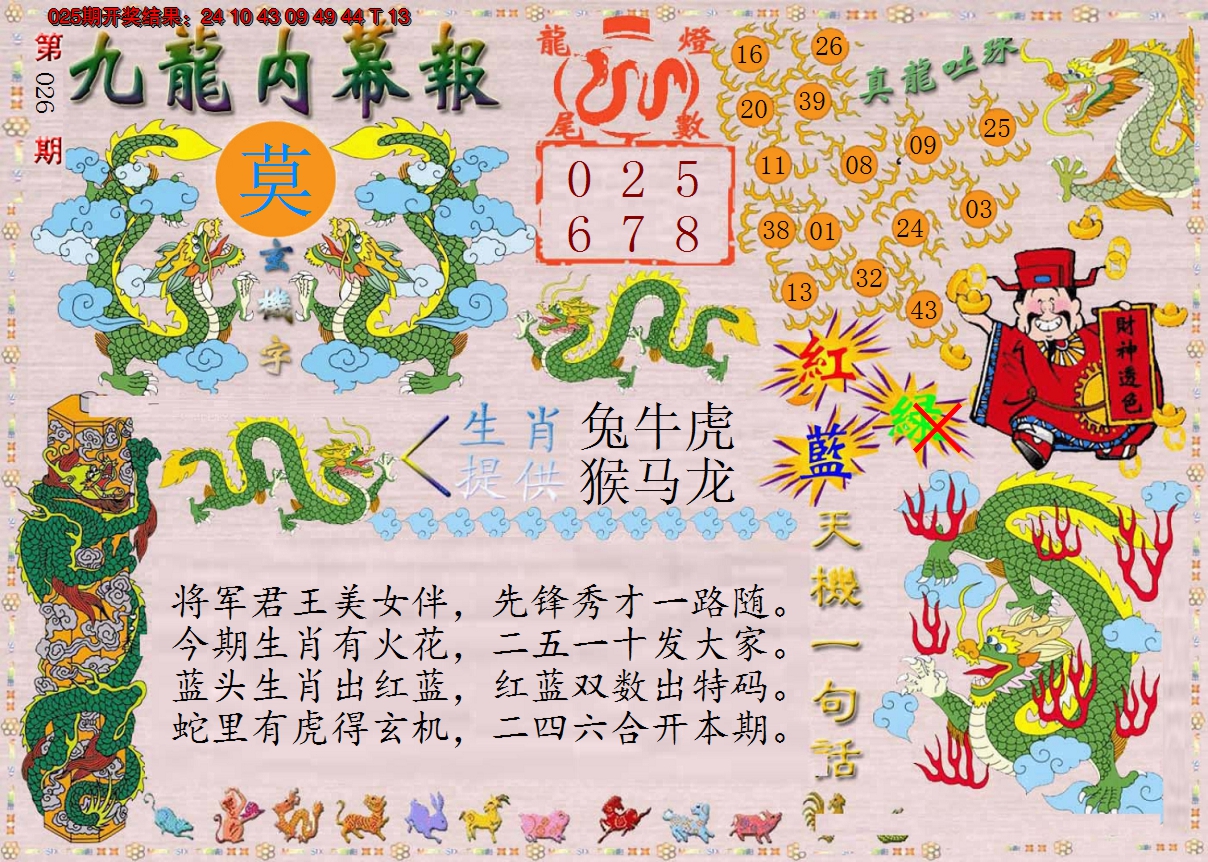 025期开奖结果：24 10 43 09 49 44 T 13
第026期
九龍内幕報
莫
玄機字
龍燈
尾數
0 2 5
6 7 8
真龍吐珠
16 26
20 39
11 08 09 25
38 01 24 03
13 32 43
財神透色
紅
綠
藍
生肖 兔牛虎
提供 猴马龙
将军君王美女伴，先锋秀才一路随。
今期生肖有火花，二五一十发大家。
蓝头生肖出红蓝，红蓝双数出特码。
蛇里有虎得玄机，二四六合开本期。
天機一句话